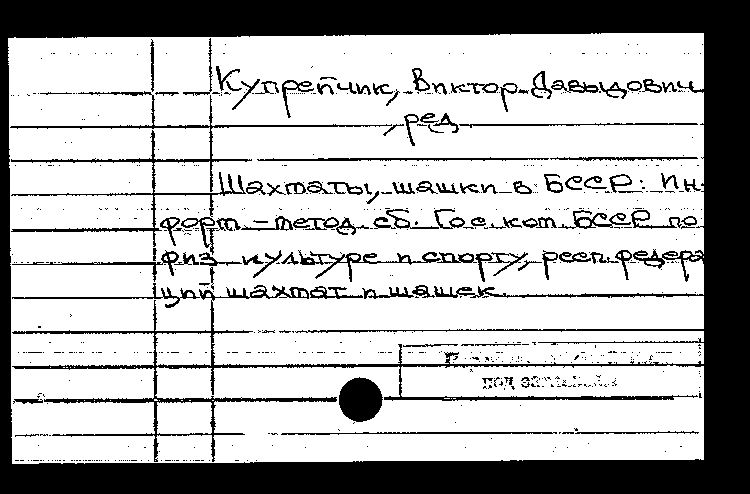 Купрейчик, Виктор Давыдович
, ред
Шахматы, шашки в БССР: Ин-
форм.-метод. сб. Гос. ком. БССР по
физ. культуре и спорту, респ. федера
ций шахмат и шашек.
под